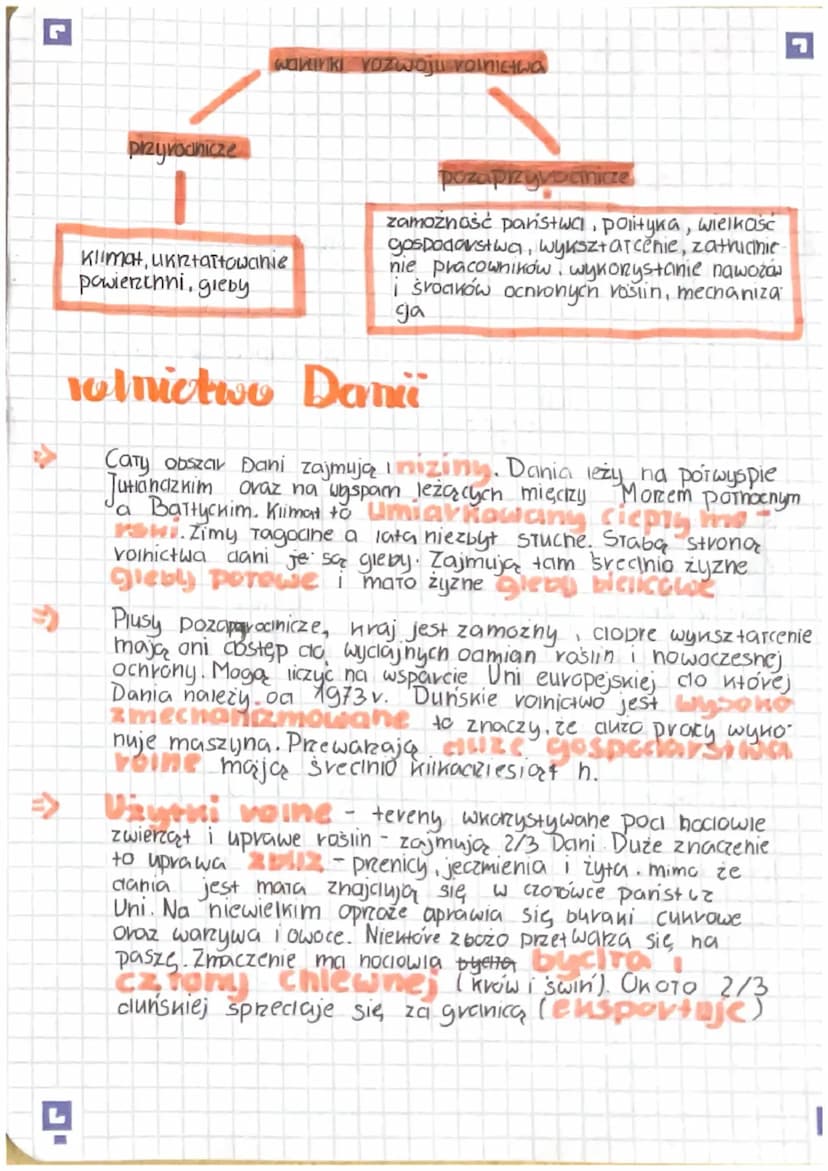 warunki rozwoju rolnictwa
przyrodnicze
pozaprzyrodnicze
klimat, ukształtowanie
powierzchni, gleby
zamożność państwa, polityka, wielkość
gospodarstwa, wykształcenie, zatrudnie-
nie pracowników, wykorzystanie nawozów
i środków ochronych roślin, mechaniza
cja
rolnictwo Danii
=> Cały obszar Dani zajmują niziny. Dania leży na półwyspie
Jutlandzkim oraz na wyspach leżących między Morzem północnym
a Bałtyckim. Klimat to umiarkowany ciepły mo-
rski. Zimy łagodne a lata niezbyt suche. Słabą stroną
rolnictwa dani je są gleby. Zajmują tam średnio żyzne
gleby płowe i mało żyzne gleby bielicowe
=> Plusy pozaprzyrodnicze, kraj jest zamożny, dobre wyksztarcenie
mają oni dostęp do wydajnych odmian roślin i nowoczesnej
ochrony. Mogą liczyć na wsparcie Uni europejskiej do której
Dania należy od 1973 r. Duńskie rolnictwo jest wysoko
zmechanizmowane to znaczy, że dużo pracy wyko-
nuje maszyna. Przeważają duże gospodarstwa
rolne mają średnio kilkadziesiąt h.
=> Użytki rolne - tereny wkorzystywane pod hodowle
zwierząt i uprawe roślin - zajmują 2/3 Dani. Duże znaczenie
to uprawa zbóż - przenicy, jeczmienia i żyta. mimo że
dania jest mała znajdują się w czołówce państ z
Uni. Na niewielkim oprzaże uprawia się buraki cukrowe
oraz warzywa i owoce. Niektóre zbożo przetwarza się na
paszę. Zmaczenie ma hodowla bydła bydła i
czrony chlewnej (krów i świń). Około 2/3
duńskiej sprzedaje się za granicą (eksportuje)